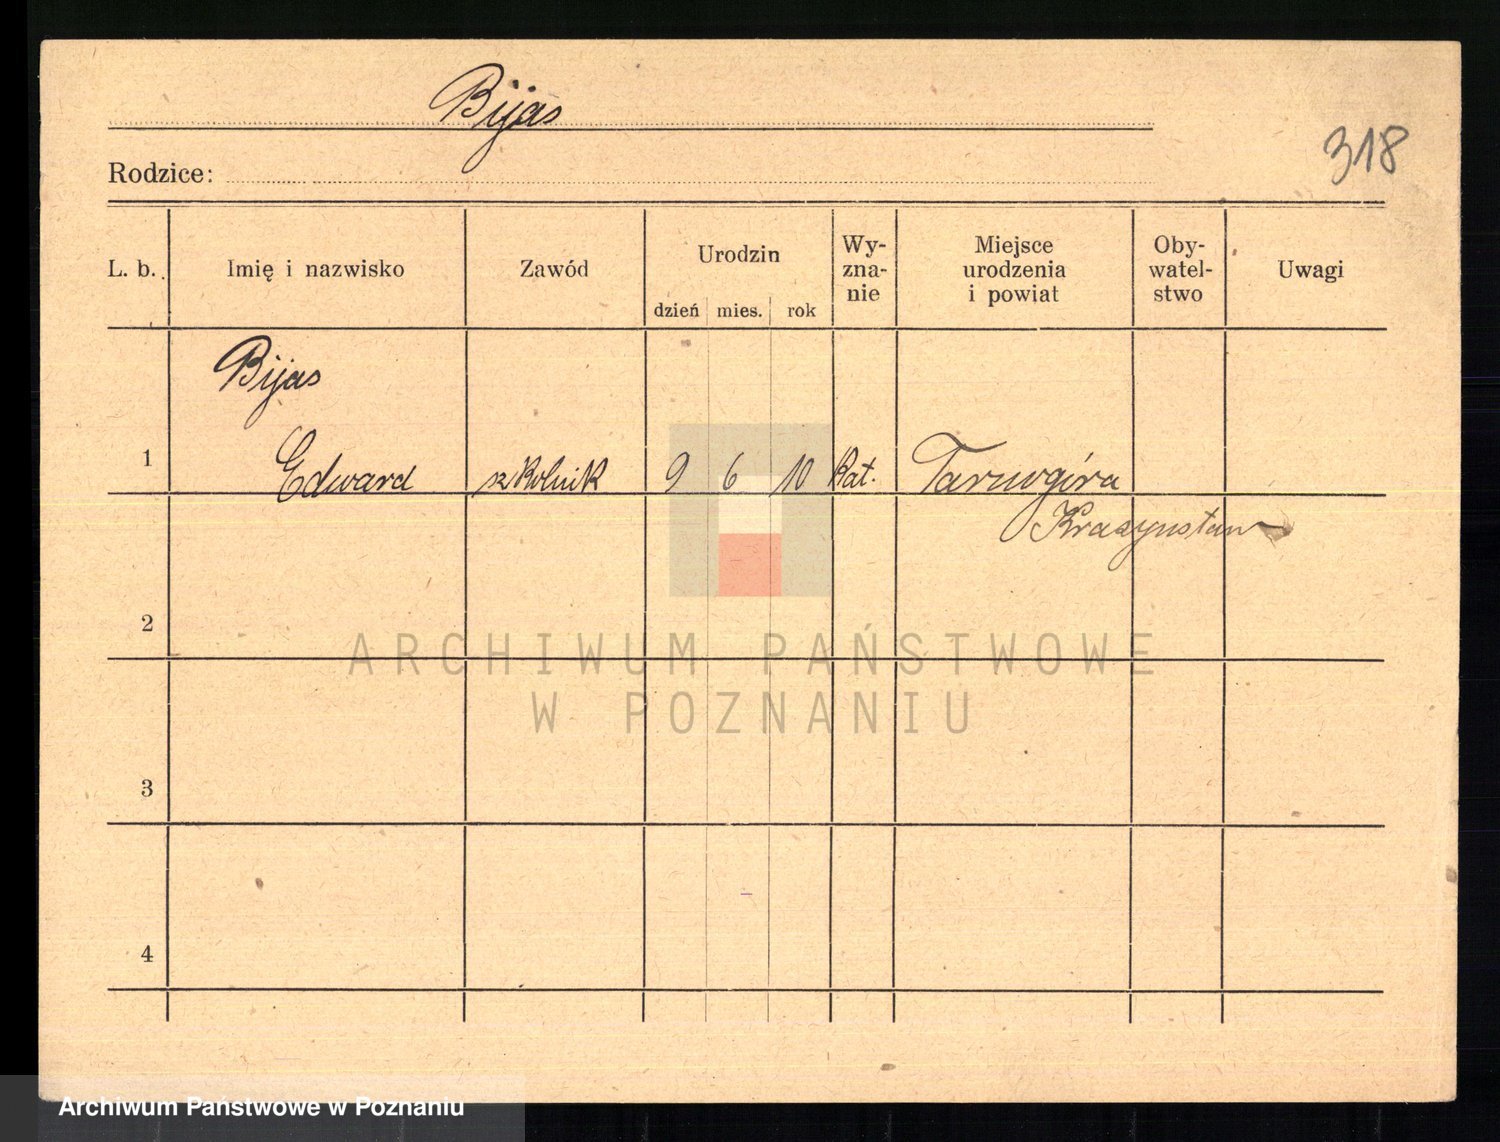 Bijas
318
Rodzice:
L. b. Imię i nazwisko Zawód Urodzin dzień mies. rok Wy-zna-nie Miejsce urodzenia i powiat Oby-watel-stwo Uwagi
Bijas
1 Edward szkolnik 9 6 10 Kat. Tarnogóra
Krasnystaw
2
ARCHIWUM PAŃSTWOWE
W POZNANIU
3
4
Archiwum Państwowe w Poznaniu